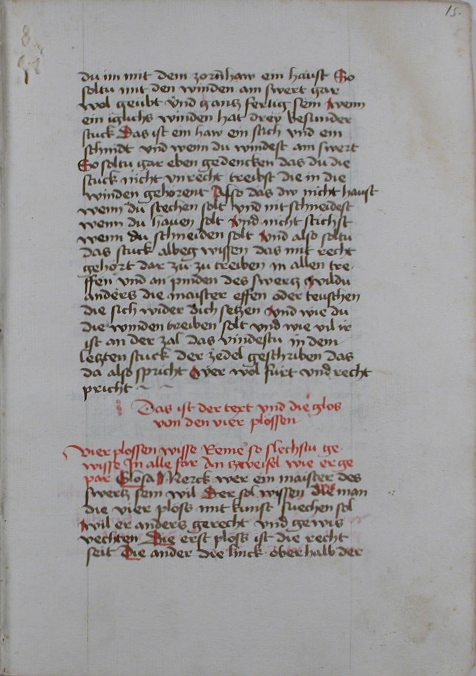 15.
du im mit dem zornhaw ein haust So
soltu mit den winden am swert gar
wol geubt und gantz fertig sein wenn
ein iglichs winden hat drey besunder
stuck Das ist ein haw ein stich und ein
schnidt und wenn du windest am swert
So soltu gar eben gedencken das du die
stuck nicht unrecht treibst die in die
winden gehorent Also das dw nicht haust
wenn du stechen solt und nit schneidest
wenn du hauen solt und nicht stichst
wenn du schneiden solt und also soltu
das stuck albeg wissen das mit recht
gehort dar zu zu treiben in allen tre-
ffen und an pinden des swertz wildu
anders die maister effen oder teuschen
die sich wider dich setzen und wie du
die winden treiben solt und wie vil ir
ist an der zal das vindestu in dem
letzten stuck der zedel geschriben das
da also spricht Wer wol furt und recht
pricht
Das ist der text und die glos
von den vier plossen
Vier plossen wisse Reme so slechstu ge-
wisse In alle far An zweifel wie er ge
par Glosa Merck wer ein maister des
swertz sein wil Der sol wissen wie man
die vier ploss mit kunst suechen sol
wil er anders gerecht und gewis
vechten Die erst ploss ist die recht
seit Die ander die linck oberhalb der